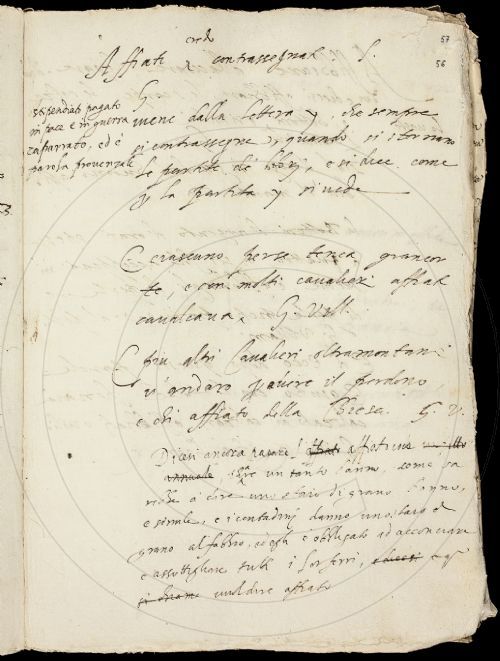 57
56
credo
Affiati contrassegnati S.
G
stipendiato pagato
in pace e in guerra
zaffarrato, ed è
parola provenzale
viene dalla lettera y, che sempre
si contrassegna, quando si
le partite de' libri, e si dice come
la partita y si vede
Cerascuno per se tenea gran cor
te, e con molti cavalieri
cavalcava, G. Vill.
E piu altri Cavalieri oltramontani
v'andaro avere il perdono,
e chi affiato della Chiesa. G. V.
Dicesi ancora
annuale un tanto l'anno, come
a dire uno staro di grano l'anno,
e simile, e i contadini danno uno staro di
grano al fabbro, ed egli è obbligato ad acconciare
e assottigliare tutti i
vuol dire affiato